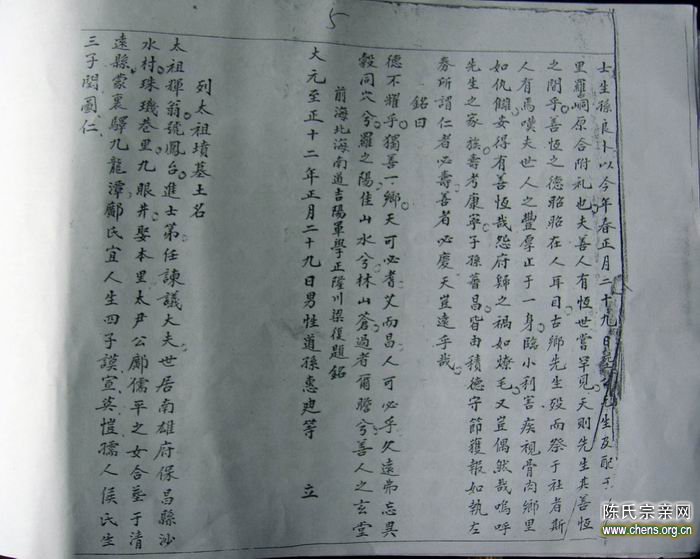 5
士生孫良卜以今年春正月二十九日
里羅峒原合附礼也夫善人有恆世嘗罕見天則先生其善恆
之間乎善恆之德昭昭在人耳目古鄉先生殁而祭于社者斯
人有焉嘆夫世人之豐厚止于一身臨小利害疾視骨肉鄉里
如仇讎安得有善恆哉怨府歸之禍如燎毛又豈偶然哉嗚呼
先生之家族壽考康寧子孫蕃昌皆由積德守節獲報如執左
券所謂仁者必壽善者必慶天豈遠乎哉
銘曰
德不耀乎獨善一鄉天可必者艾而昌人可必乎久遠弗忘具
穀同穴兮羅之陽佳山水兮林山蒼過者爾瞻兮善人之玄堂
前海北海南道吉陽軍學正陞川梁復題銘
大元至正十二年正月二十九日男性道孫惠迪等 立
列太祖墳墓王名
太祖輝翁號鳳台進士第任諫議大夫世居南雄府保昌縣沙
水村珠璣巷里九眼井娶本里太尹公鄺儒平之女合墓于清
遠縣蒙裏驛九龍潭鄺氏宜人生四子謨宣英愷孺人侯氏生
三子閔圖仁
陈氏宗亲网
www.chens.org.cn